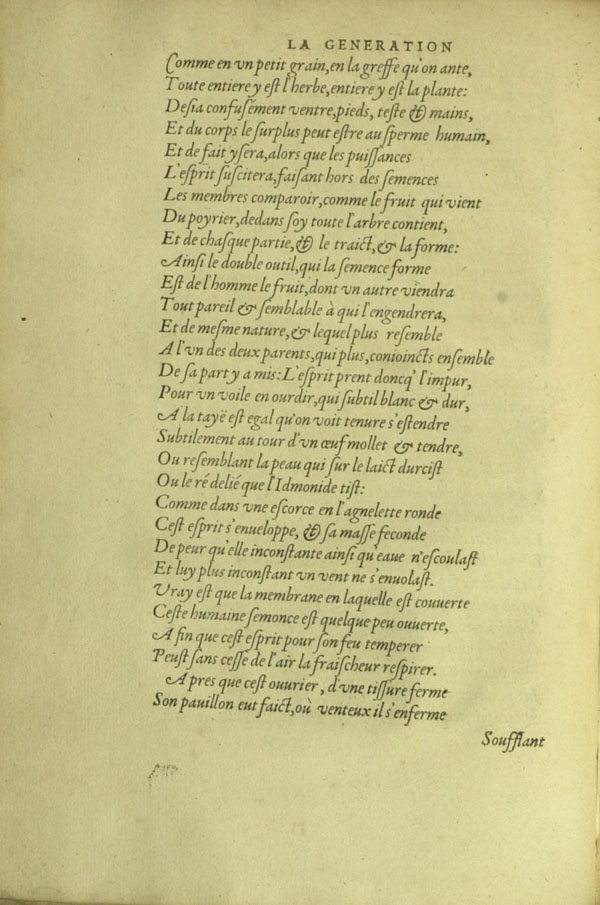 LA GENERATION
Comme en vn petit grain, en la greffe qu'on ante,
Toute entiere y est l'herbe, entiere y est la plante:
Desia confusément ventre, pieds, teste & mains,
Et du corps le surplus peut estre au sperme humain,
Et de fait y sera, alors que les puissances
L'esprit suscitera, faisant hors des semences
Les membres comparoir, comme le fruit qui vient
Du poyrier, dedans soy toute l'arbre contient,
Et de chasque partie, & le traict, & la forme:
Ainsi le double outil, qui la semence forme
Est de l'homme le fruit, dont vn autre viendra
Tout pareil & semblable à qui l'engendrera,
Et de mesme nature, & lequel plus resemble
A l'vn des deux parents, qui plus, conioincts ensemble
De sa part y a mis: L'esprit prent doncq' l'impur,
Pour vn voile en ourdir, qui subtil blanc & dur,
A la tayë est egal qu'on voit tenure s'estendre
Subtilement au tour d'vn œuf mollet & tendre,
Ou resemblant la peau qui sur le laict durcist
Ou le ré delié que l'Idmonide tist:
Comme dans vne escorce en l'agnelette ronde
Cest esprit s'enueloppe, & sa masse feconde
De peur qu'elle inconstante ainsi qu'eaue n'escoulast
Et luy plus inconstant vn vent ne s'enuolast.
Vray est que la membrane en laquelle est couuerte
Ceste humaine semonce est quelque peu ouuerte,
A fin que cest esprit pour son feu temperer
Peust sans cesse de l'air la fraischeur respirer.
Apres que cest ouurier, d'vne tissure ferme
Son pauillon eut faict, où venteux il s'enferme
Soufflant